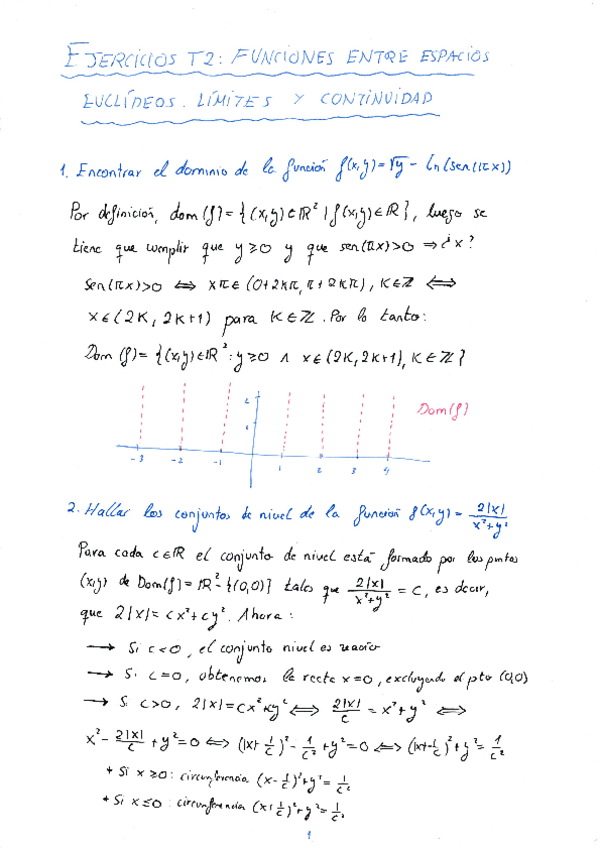 EJERCICIOS T2: FUNCIONES ENTRE ESPACIOS
EUCLÍDEOS. LÍMITES Y CONTINUIDAD
1. Encontrar el dominio de la función f(x,y)=√y - Ln(sen(πx))
Por definición, dom(f)={(x,y)∈ℝ² / f(x,y)∈ℝ}, luego se
tiene que cumplir que y≥0 y que sen(πx)>0 ⇒ ¿x?
Sen(πx)>0 ⟺ xπ∈(0+2kπ, π+2kπ), K∈ℤ ⟺
x∈(2K, 2K+1) para K∈ℤ. Por lo tanto:
Dom(f)= {(x,y)∈ℝ²: y≥0 ∧ x∈(2K, 2K+1), K∈ℤ}
2
1
Dom(f)
-3 -2 -1 1 2 3 4
2. Hallar los conjuntos de nivel de la función f(x,y) = 2|x|/(x²+y²)
Para cada c∈ℝ el conjunto de nivel está formado por los puntos
(x,y) de Dom(f)=ℝ²-{(0,0)} tales que 2|x|/(x²+y²) = C, es decir,
que 2|x|= cx²+cy². Ahora:
→ Si c<0, el conjunto nivel es vacío
→ Si c=0, obtenemos la recta x=0, excluyendo el pto (0,0)
→ Si c>0, 2|x|=cx²+cy² ⟺ 2|x|/c = x²+y² ⟺
x² - 2|x|/c + y²=0 ⟺ (|x|-1/c)² - 1/c² + y²=0 ⟺ (|x|-1/c)²+y²= 1/c²
* Si x≥0: circunferencia (x-1/c)²+y²= 1/c²
* Si x≤0: circunferencia (x+1/c)²+y²= 1/c²
1